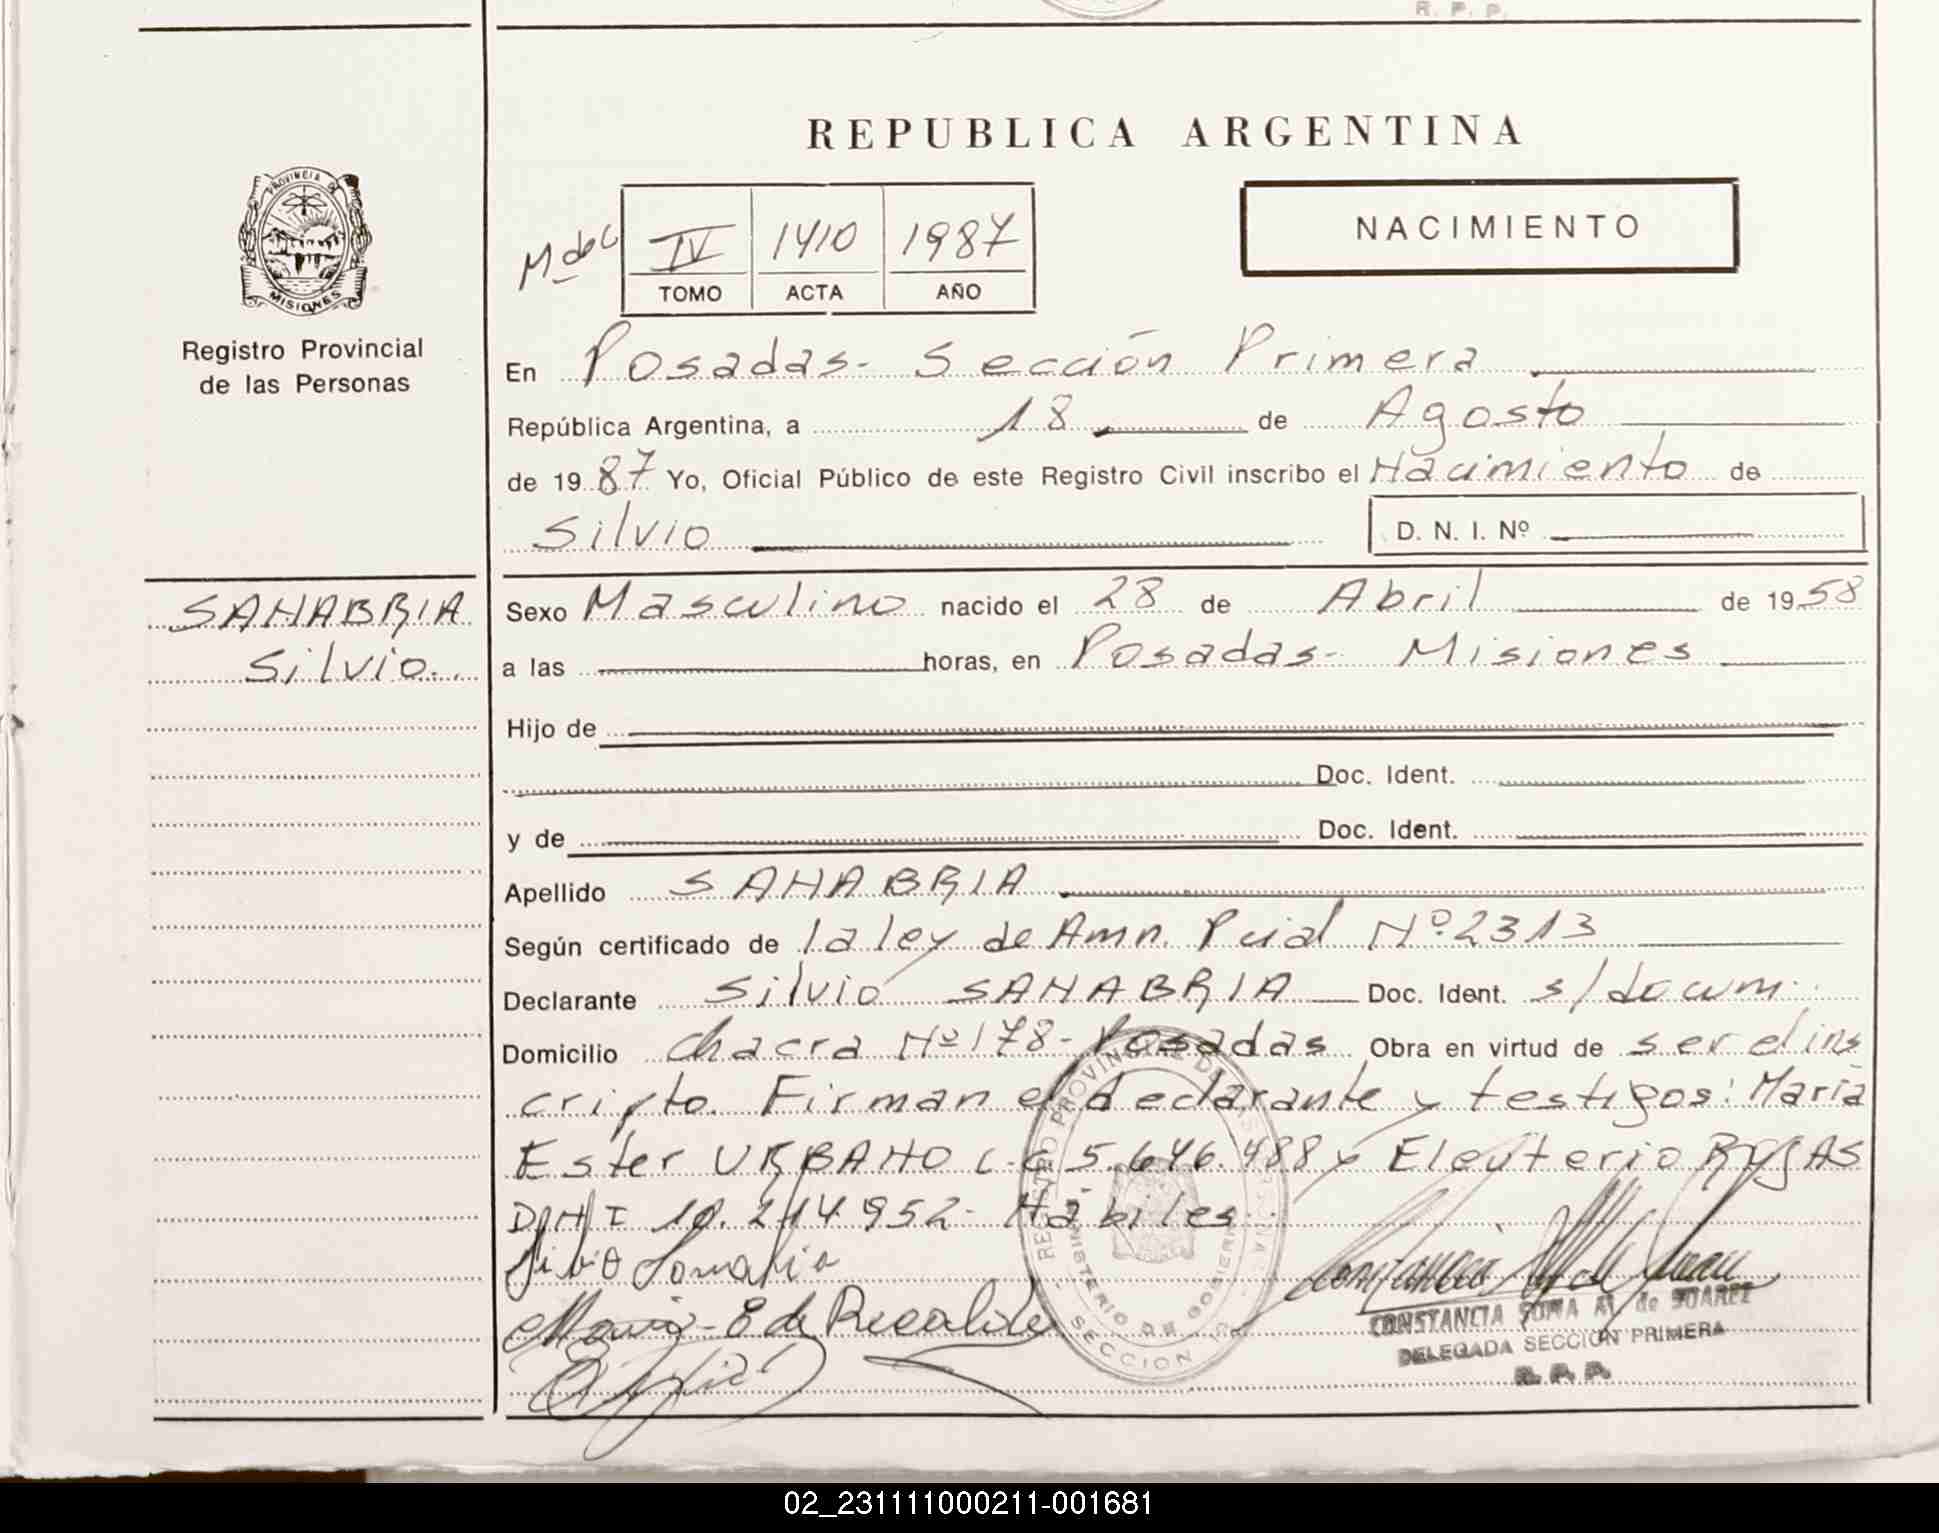 R. P. P.
REPUBLICA ARGENTINA
PROVINCIA DE
MISIONES
Registro Provincial
de las Personas
M de C
IV 1410 1987
TOMO ACTA AÑO
NACIMIENTO
En Posadas- Sección Primera
República Argentina, a 18 de Agosto
de 1987 Yo, Oficial Público de este Registro Civil inscribo el Nacimiento de
Silvio D. N. I. Nº
SANABRIA
Silvio.
Sexo Masculino nacido el 28 de Abril de 1958
a las horas, en Posadas- Misiones
Hijo de
Doc. Ident.
y de Doc. Ident.
Apellido SANABRIA
Según certificado de la ley de Amn. Pcial Nº 2313
Declarante Silvio SANABRIA Doc. Ident. s/docum.
Domicilio Chacra Nº 178- Posadas Obra en virtud de ser el ins
cripto. Firman el declarante y testigos: María
Ester URBANO L.C 5.646.488 y Eleuterio ROJAS
DNI 10.214.952- Hábiles.
REGISTRO PROVINCIAL DE LAS PERSONAS
MINISTERIO DE GOBIERNO
SECCION
Silvio Sanabria
Maria E de Recalde
CONSTANCIA de SUAREZ
DELEGADA SECCION PRIMERA
R. P. P.
02_231111000211-001681